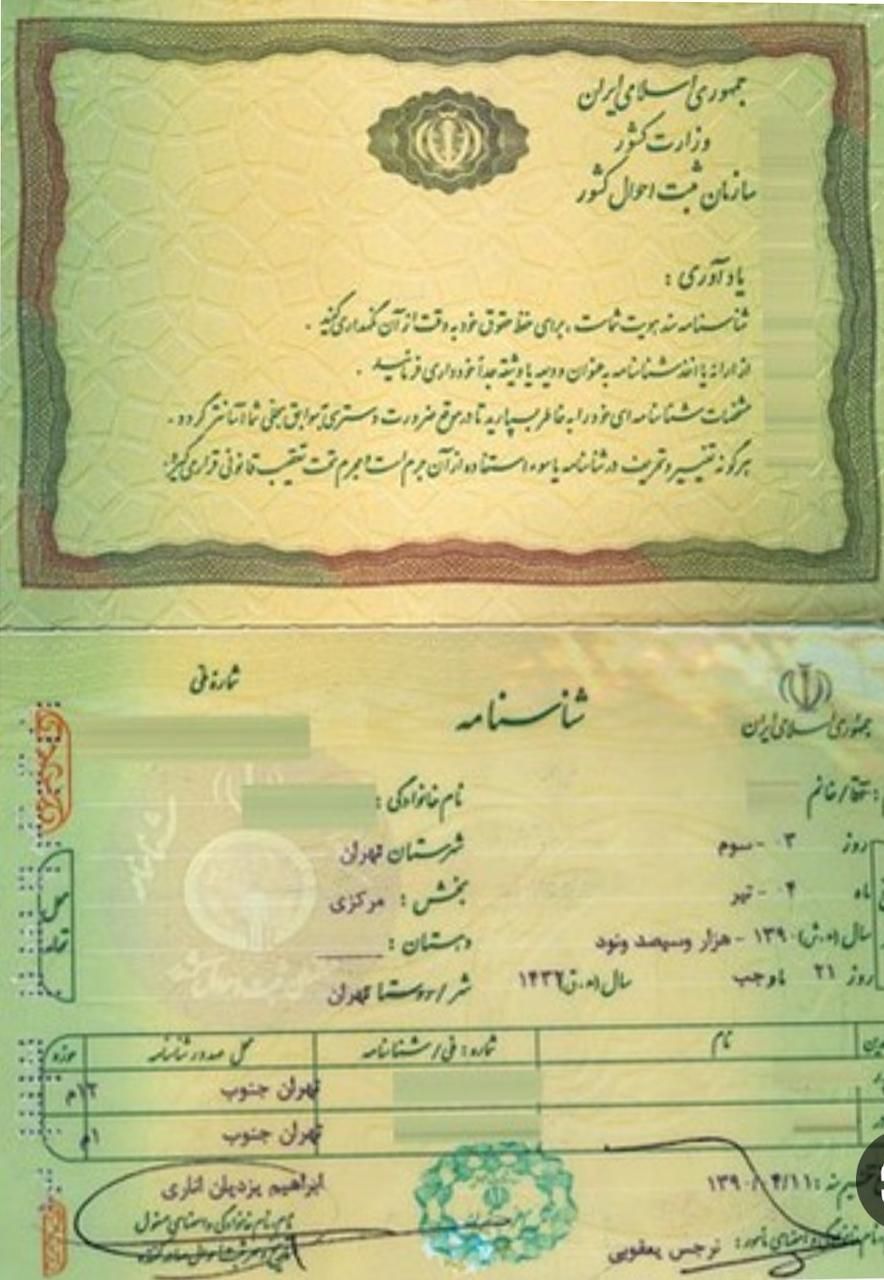 جمهوری اسلامی ایران
وزارت کشور
سازمان ثبت احوال کشور
یادآوری :
شناسنامه سند هویت شماست ، برای حفظ حقوق خود به دقت از آن نگهداری کنید .
از ارائه یا اخذ شناسنامه به عنوان ودیعه یا وثیقه جداً خودداری فرمائید .
مشخصات شناسنامه ای خود را به خاطر بسپارید تا در موقع ضرورت دسترسی به سوابق سجلی شما آسانتر گردد .
هرگونه تغییر و تحریف در شناسنامه یا سوء استفاده از آن جرم است و مجرم تحت تعقیب قانونی قرار می گیرد .
جمهوری اسلامی ایران
شناسنامه
شماره ملی
آقا/خانم :
نام خانوادگی :
روز ۰۳ - سوم
شهرستان تهران
ماه ۰۴ - تیر
بخش : مرکزی
سال (ه.ش) ۱۳۹۰ - هزار و سیصد و نود
دهستان :
روز ۲۱ ماه رجب سال (ه.ق) ۱۴۳۲
شهر/روستا تهران
نام شماره : ملی/شناسنامه محل صدور شناسنامه حوزه
تهران جنوب ۱۲م
تهران جنوب ۱م
۱۳۹۰/۰۴/۱۱
ابراهیم یزدیان اناری
نام، نام خانوادگی و امضای مسئول
نام خانوادگی و امضای مأمور : نرجس یعقوبی